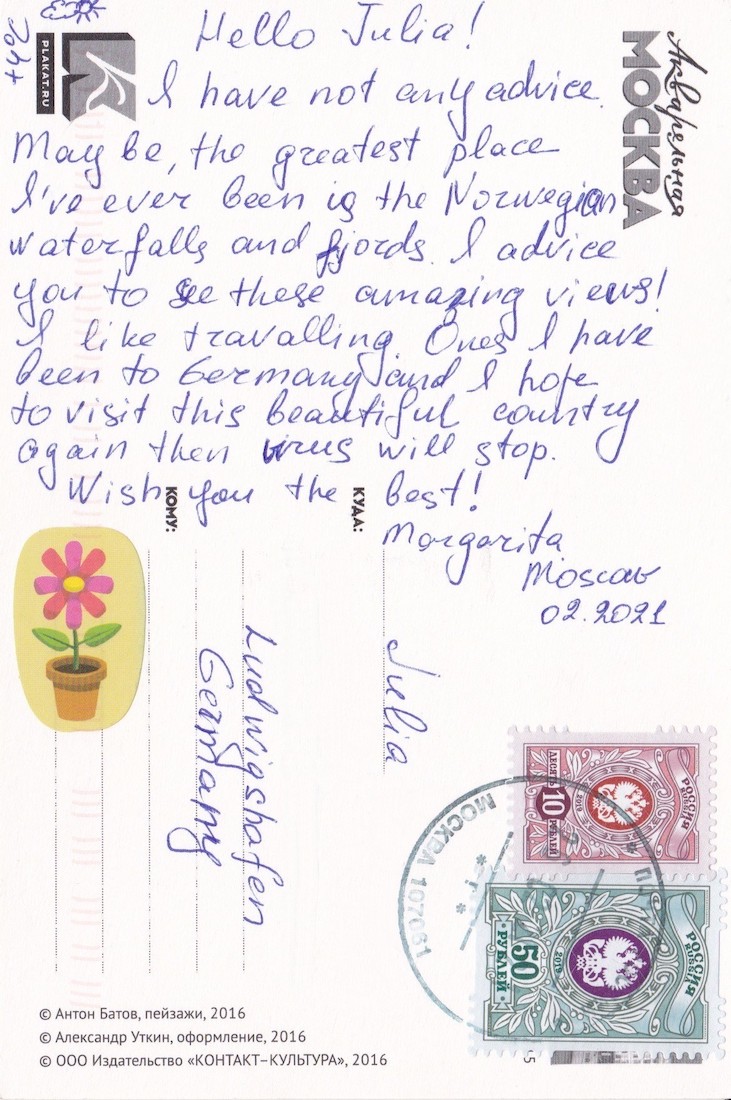 Hello Julia!
I have not any advice.
May be, the greatest place
I've ever been is the Norwegian
waterfalls and fjords. I advice
you to see these amazing views!
I like travalling. Ones I have
been to Germany and I hope
to visit this beautiful country
again then virus will stop.
Wish you the best!
Margarita
Moscow
02.2021
PLAKAT.RU
Акварельная
МОСКВА
КОМУ:
КУДА:
Julia
Ludwigshafen
Germany
РОССИЯ
ROSSIJA
2019
10
ДЕСЯТЬ РУБЛЕЙ
РОССИЯ
ROSSIJA
2019
50
РУБЛЕЙ
МОСКВА 107061
© Антон Батов, пейзажи, 2016
© Александр Уткин, оформление, 2016
© ООО Издательство «КОНТАКТ–КУЛЬТУРА», 2016